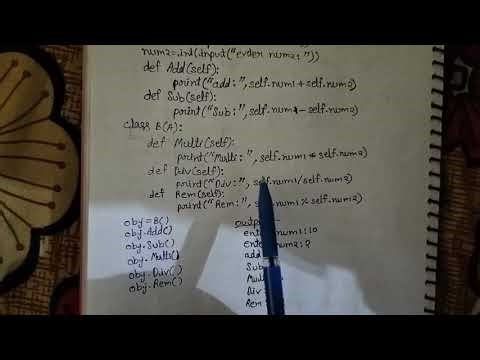 num2=.int(.input("enter num2:"))
def Add(self):
print("add:", self.num1+self.num2)
def Sub(self):
print("Sub:", self.num1-self.num2)
class B(A):
def Multi(self):
print("Multi:", self.num1*self.num2)
def Div(self):
print("Div:", self.num1/self.num2)
def Rem(self):
print("Rem:", self.num1%self.num2)
obj=B()
obj.Add()
obj.Sub()
obj.Multi()
obj.Div()
obj.Rem()
num1:10
num2:?
add
Sub
Mul
Div
Rem